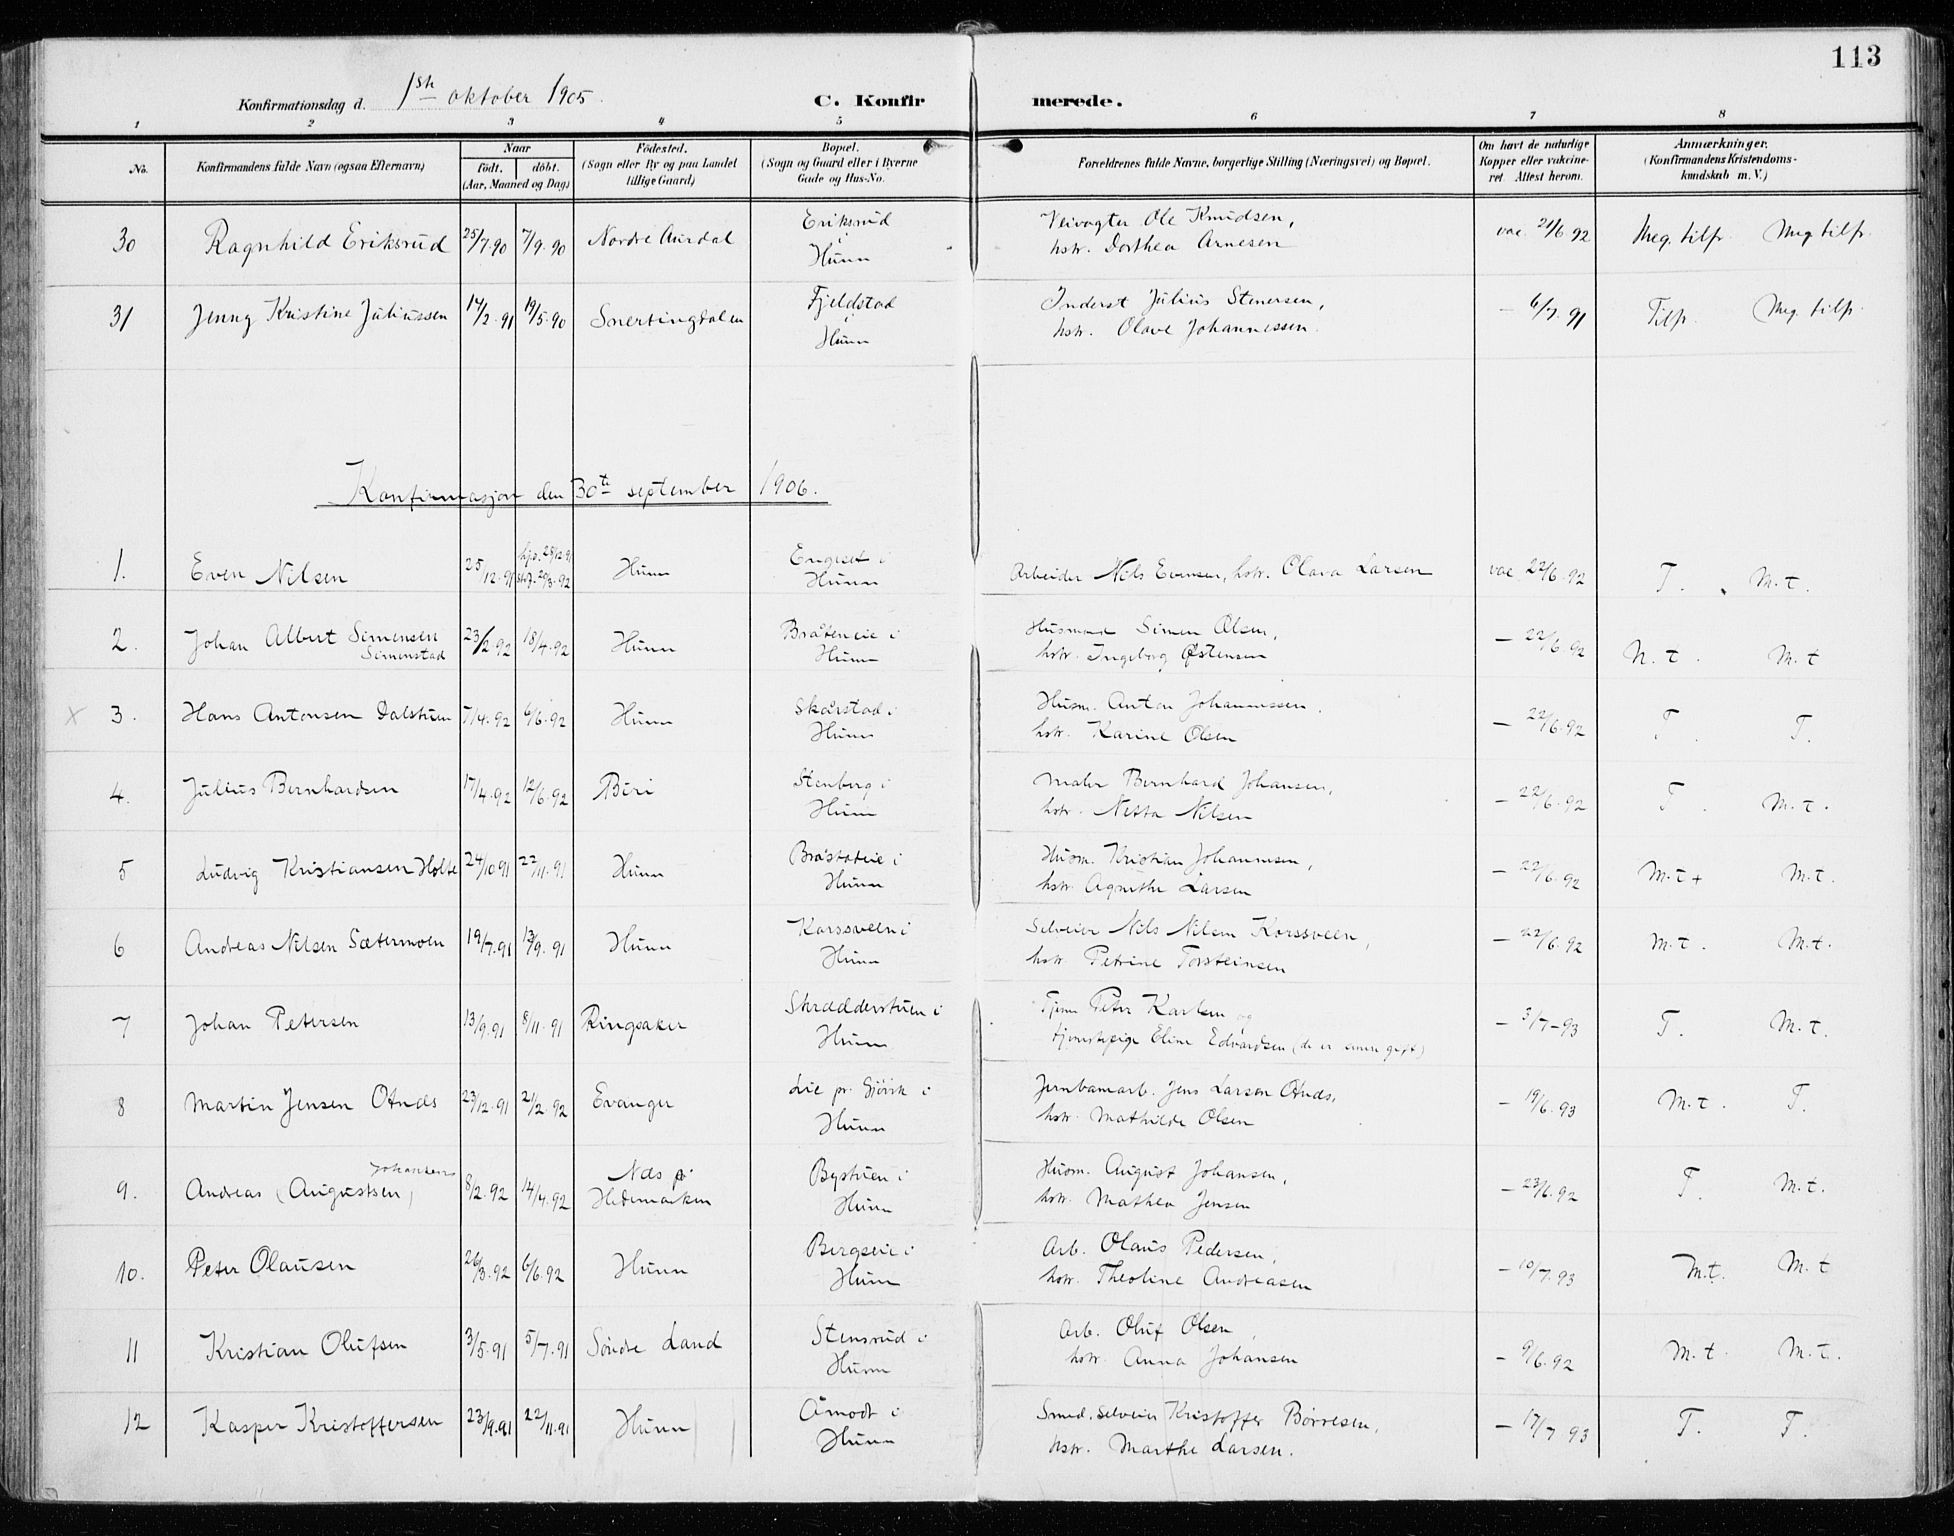 113
Konfirmationsdag d. 1ste oktober 1905.
C. Konfirmerede.
1 2 3 4 5 6 7 8
No. Konfirmandens fulde Navn (ogsaa Efternavn) Naar födt. döbt. (Aar, Maaned og Dag) Födested. (Sogn eller By og paa Landet tillige Gaard) Bopæl. (Sogn og Gaard eller i Byerne Gade og Hus-No. Forældrenes fulde Navne, borgerlige Stilling (Næringsvei) og Bopæl. Om havt de naturlige Kopper eller vakcineret. Attest herom. Anmærkninger. (Konfirmandens Kristendomskundskab m. V.)
30 Ragnhild Eriksrud 25/7.90 7/9.90 Nordre Aurdal Eriksrud i Hunn Veivogter Ole Knudsen, hstr. Dorthea Arnesen vac. 21/6.92 Meg. tilfr. Meg tilfr.
31 Jenny Kristine Juliussen 14/2.91 19/5.90 Snertingdalen Fjeldstad i Hunn Inderst Julius Stenersen, hstr. Olave Johannessen. – 6/7.91 Tilfr. Meg. tilfr.
Konfirmasjon den 30te september 1906.
1. Even Nilsen 25/12.91 hjd. 28/12 91 st.f. 20/3.92 Hunn Engeset i Hunn Arbeider Nils Evensen, hstr. Olava Larsen vac. 22/6.92 T. M.t.
2. Johan Albert Simensen Simenstad 23/2.92 18/4.92 Hunn Bråteneie i Hunn Husmand Simen Olsen, hstr. Ingeborg Østensen – 22/6.92 M.t. M.t
x 3. Hans Antonsen Dalstuen 7/4.92 6/6.92 Hunn Skårstad i Hunn Husm. Anton Johannessen. hstr. Karine Olsen – 22/6.92 T. T.
4. Julius Bernhardsen 17/4.92 12/6.92 Biri Stenberg i Hunn Maler Bernhard Johansen, hstr. Netta Nilsen – 22/6.92 T. M.t.
5 Ludvig Kristiansen Holte 24/10.91 22/11.91 Hunn Bråstadeie i Hunn Husm. Kristian Johannesen, hstr. Agnethe Larsen – 22/6.92 M.t+ M.t.
6 Andreas Nilsen Sætermoen 19/7.91 13/9.91 Hunn Korssveen i Hunn Selveier Nils Nilsen Korssveen, hstr. Petrine Torsteinsen – 22/6.92 M.t. M.t.
7 Johan Petersen 13/9.91 8/11.91 Ringsaker Skradderstuen i Hunn Tjener Peter Karlsen og tjenestepige Eline Edvardsen (de er senere gift) – 3/7–93 T. M.t.
8 Martin Jensen Otnes 23/12.91 21/2.92 Evanger Lie pr. Gjövik i Hunn Jernbanearb. Jens Larsen Otnes, hstr. Mathilde Olsen – 19/6.93 M.t. T.
9. Andreas (Augustsen) Johansen 8/2.92 14/4.92 Næs på Hedemarken Bystuen i Hunn Husm. August Johansen, hstr. Mathea Jensen – 23/6.92 T. M.t.
10. Peter Olausen 26/3.92 6/6.92 Hunn Bergseie i Hunn Arb. Olaus Pedersen, hstr. Theoline Andreasen – 10/7.93 M.t. M.t
11 Kristian Olufsen 3/5.91 5/7.91 Söndre Land Stensrud i Hunn Arb. Oluf Olsen, hstr. Anna Johansen – 9/6.92 M.t. M.t.
12 Kasper Kristoffersen 23/9.91 22/11.91 Hunn Åmodt i Hunn Smed, selveier Kristoffer Börresen, hstr. Marthe Larsen. – 17/7 93 T. T.